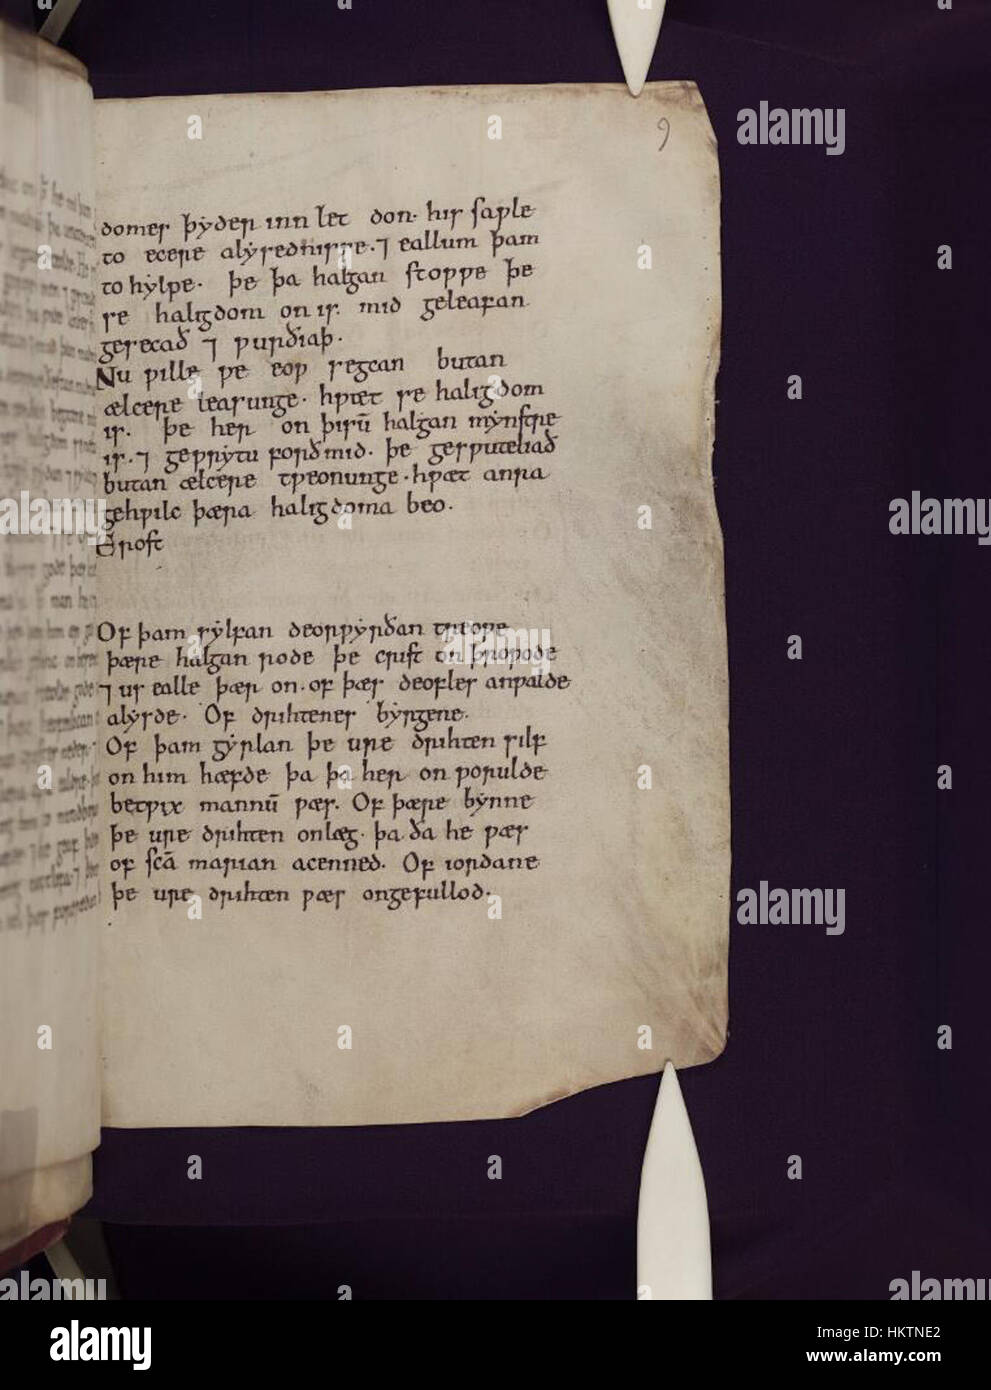 9
domes þyder inn let don. his saƿle
to ecere alysednisse. ⁊ eallum þam
to hylpe. þe þa halgan stoƿƿe þe
se haligdom on is. mid geleafan
gesecað ⁊ ƿurðiaþ.
Nu ƿille ƿe eoƿ secgan butan
ælcere leasunge. hƿæt se haligdom
is. þe her on þisū halgan mynstre
is. ⁊ geƿrytu forð mid. þe gesƿuteliað
butan ælcere tƿeonunge. hƿæt anra
gehƿilc þæra haligdoma beo.
Ærost
Of þam sylfan deorƿyrðan treoƿe
þære halgan rode þe crist on þroƿode
⁊ us ealle þær on. of þæs deofles anƿalde
alysde. Of drihtenes byrgene.
Of þam gyrlan þe ure drihten silf
on him hæfde þa þa her on ƿorulde
betƿix mannū ƿæs. Of þære bynne
þe ure drihten onlæg. þa ða he ƿæs
of scā marian acenned. Of iordane
þe ure drihten ƿæs ongefullod.
alamy
alamy
alamy
alamy
Image ID: HKTNE2
www.alamy.com